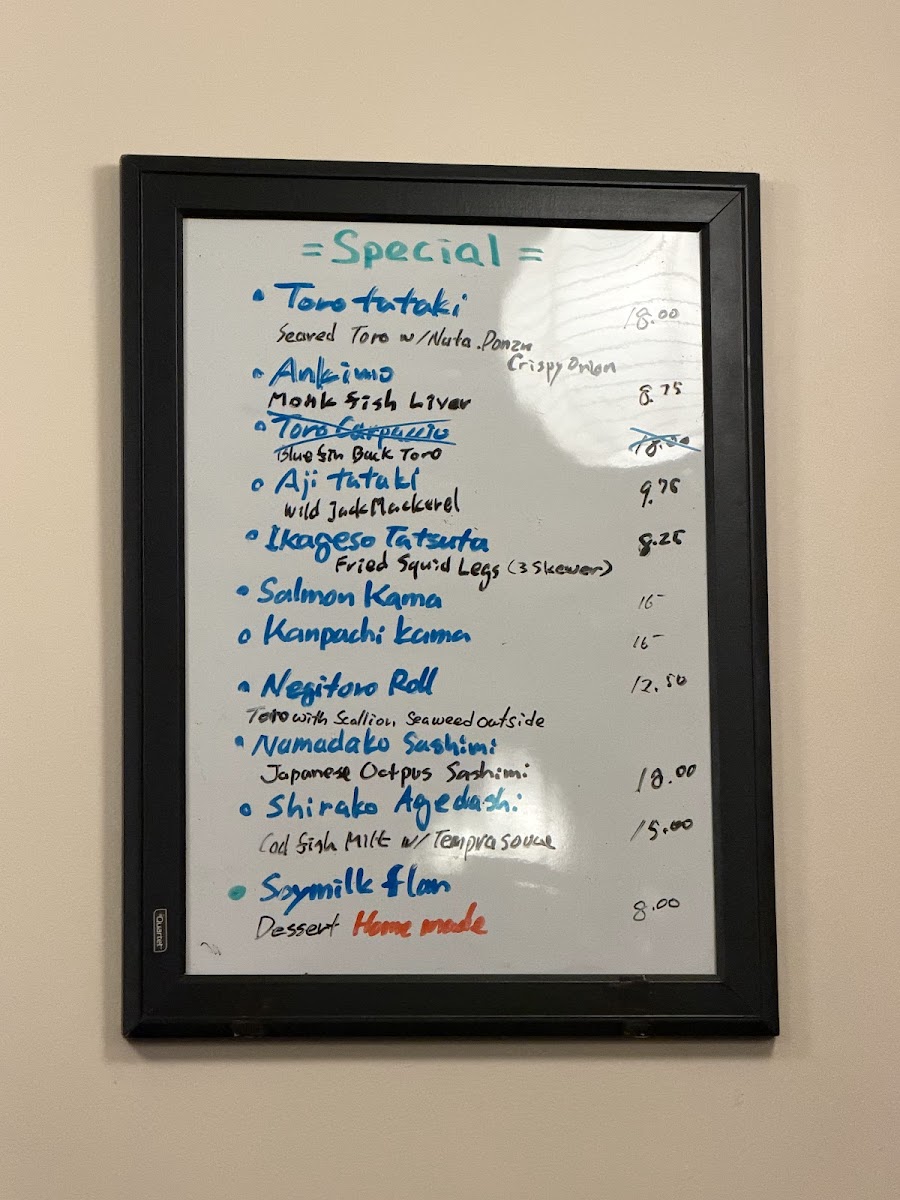 = Special =
• Toro tataki 18.00
Seared Toro w/ Nuta. Ponzu
Crispy Onion
• Ankimo 8.75
Monk fish Liver
• Toro Carpaccio 18.00
Bluefin Back Toro
• Aji tataki 9.75
Wild Jack Mackerel
• Ikageso Tatsuta 8.25
Fried Squid Legs (3 Skewer)
• Salmon Kama 16-
• Kanpachi kama 16-
• Negitoro Roll 12.50
Toro with Scallion, Seaweed outside
• Namadako Sashimi
Japanese Octpus Sashimi 18.00
• Shirako Agedashi
Cod fish Milt w/ Tempra souce 15.00
• Soymilk flan
Dessert Home made 8.00
Quartet